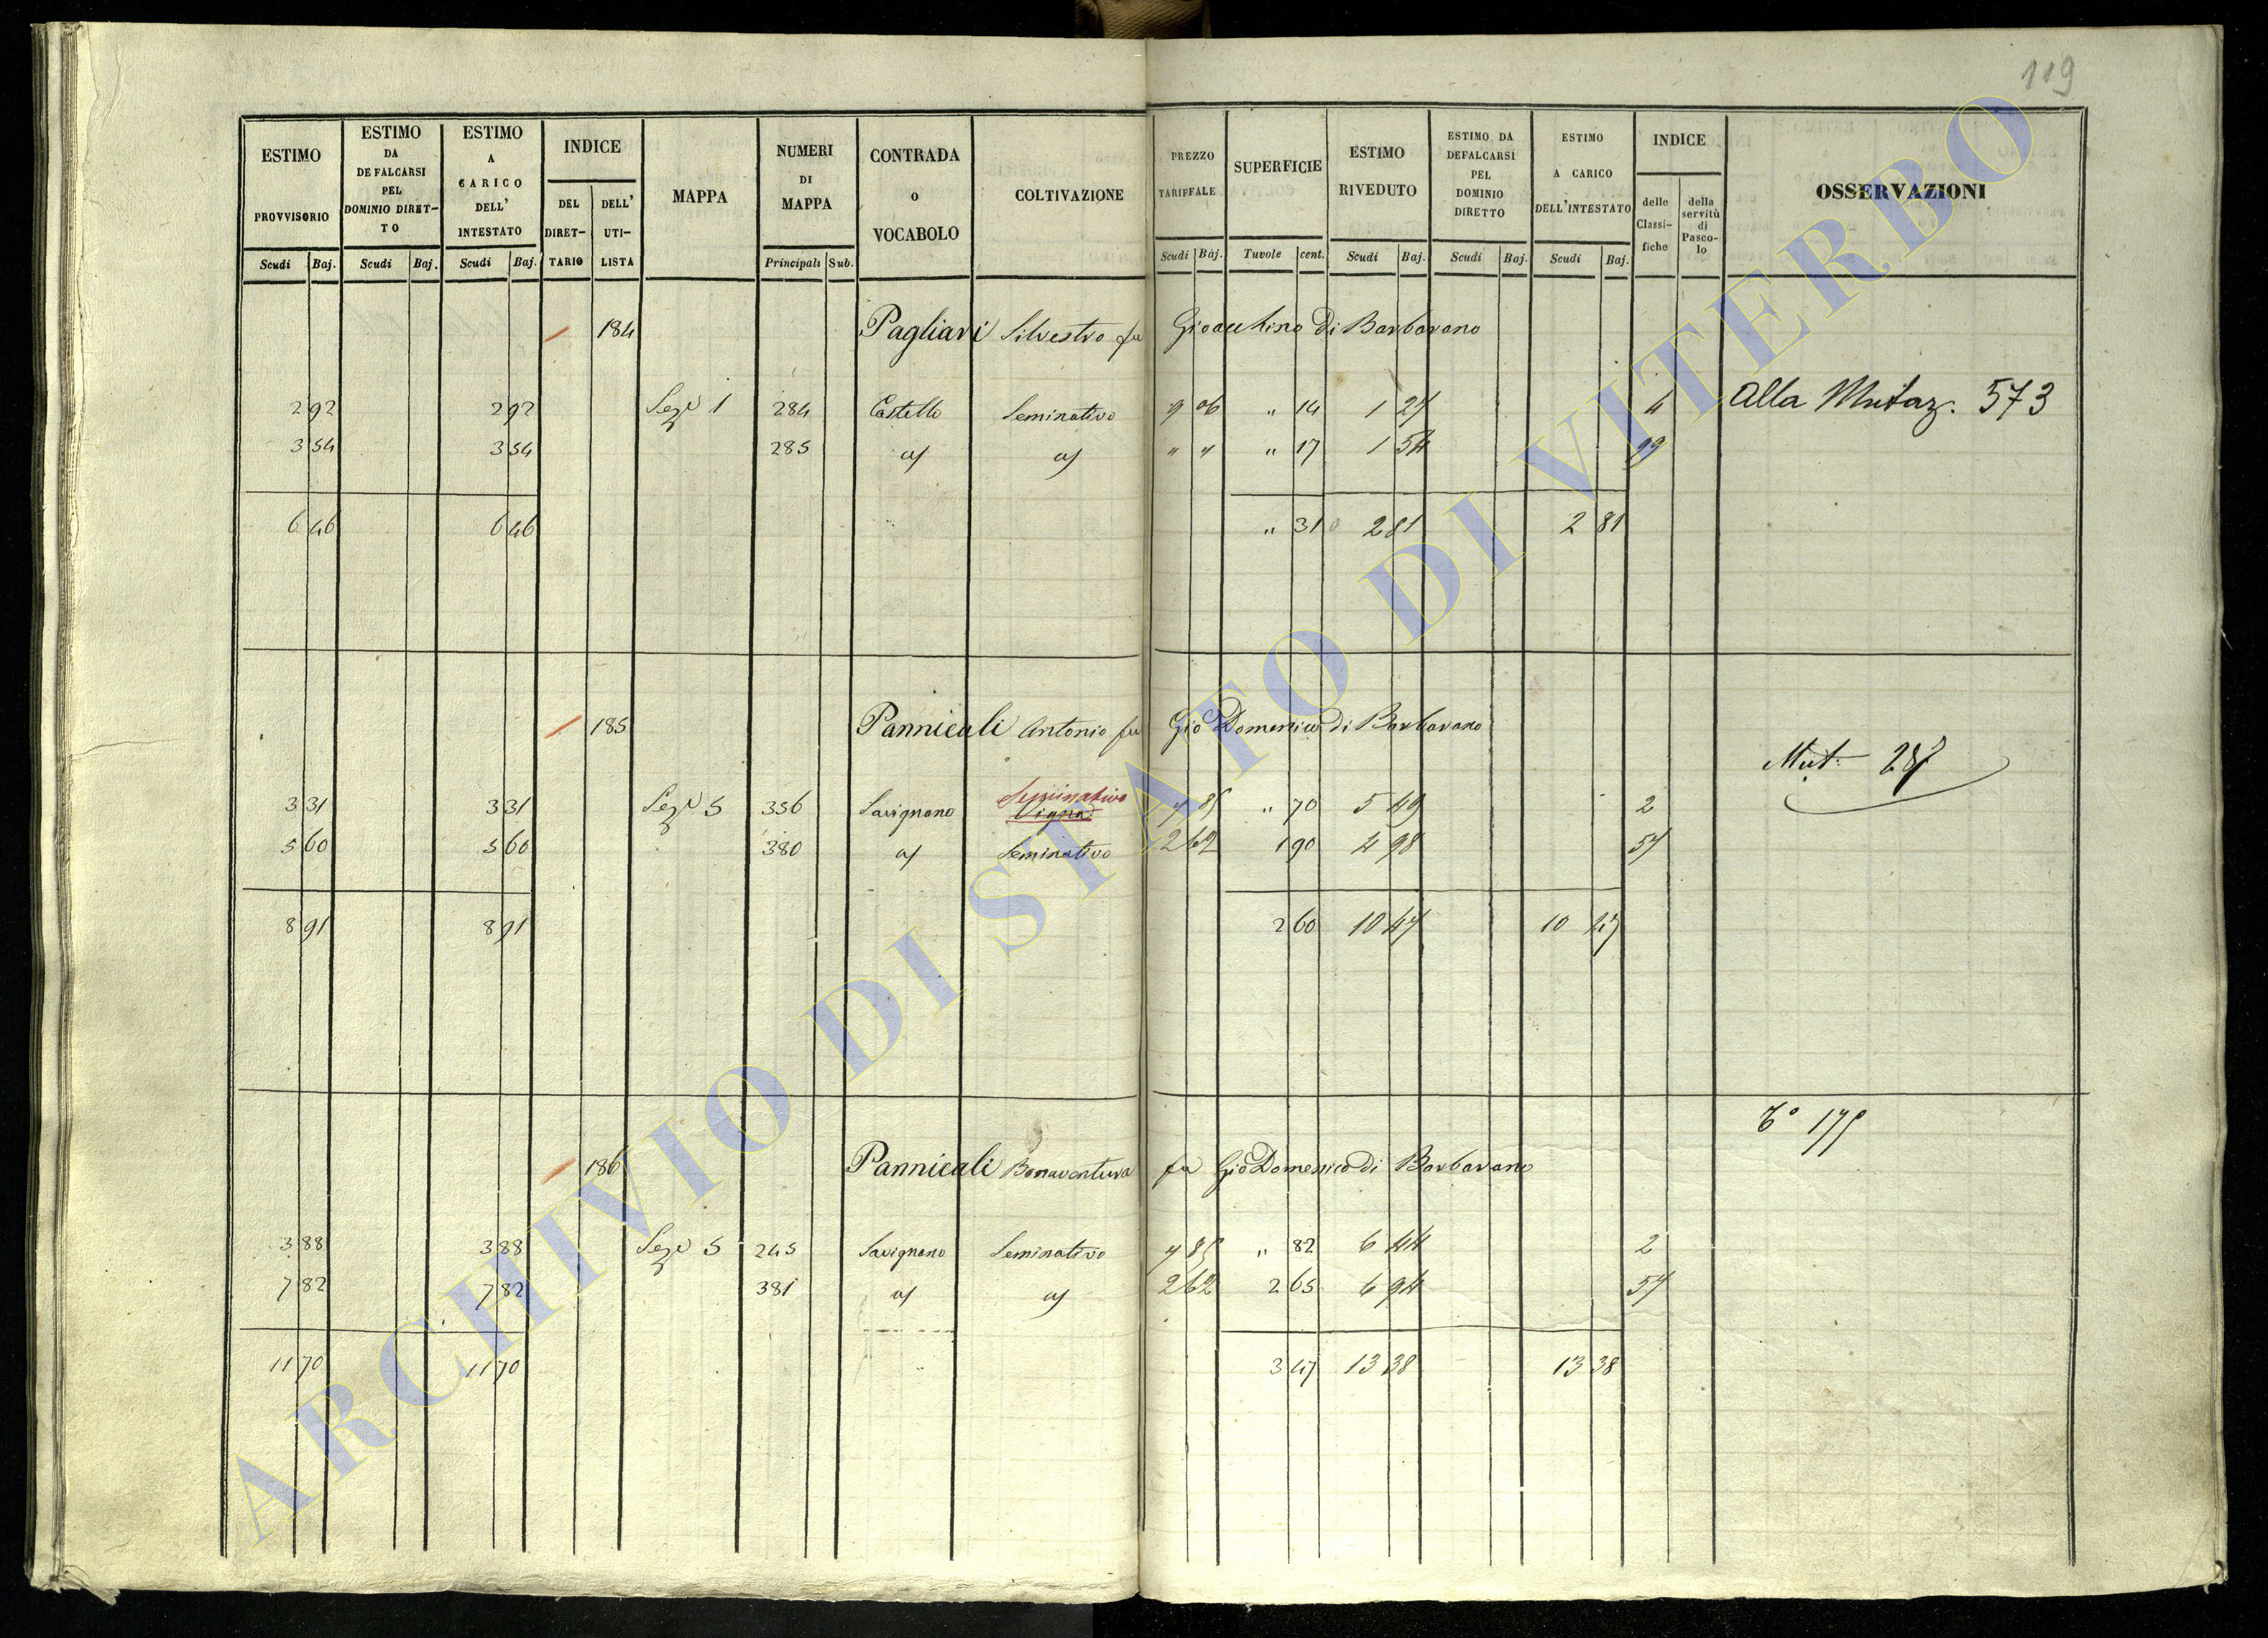 119
ESTIMO PROVVISORIO
ESTIMO DA DEFALCARSI PEL DOMINIO DIRET-TO
ESTIMO A CARICO DELL' INTESTATO
INDICE
DEL DIRET-TARIO
DELL' UTI-LISTA
MAPPA
NUMERI DI MAPPA
CONTRADA o VOCABOLO
COLTIVAZIONE
PREZZO TARIFFALE
SUPERFICIE
ESTIMO RIVEDUTO
ESTIMO DA DEFALCARSI PEL DOMINIO DIRETTO
ESTIMO A CARICO DELL'INTESTATO
INDICE
delle Classi-fiche
della servitù di Pasco-lo
OSSERVAZIONI
Scudi Baj. Scudi Baj. Scudi Baj. Principali Sub. Scudi Baj. Tavole cent. Scudi Baj. Scudi Baj. Scudi Baj.
184 Pagliari Silvestro fu Gioacchino di Barbarano
2 92 2 92 Sez.e 1 284 Castello Seminativo 9 06 " 14 1 27 4 Alla Mutaz. 573
3 54 3 54 285 " " " 17 1 54
6 46 6 46 " 31 2 81 2 81
185 Pannicali Antonio fu Gio Domenico di Barbarano
Mut.
Seminativo
3 31 3 31 Sez.e 5 356 Savignano Vigna 7 85 " 70 5 49 2
5 60 5 60 380 Seminativo 2 62 1 90 4 98 57
8 91 8 91 2 60 10 47 10 47
186 Pannicali Bonaventura fu Gio Domenico di Barbarano
3 88 3 88 Sez.e 5 245 Savignano Seminativo 7 85 " 82 6 44 2
7 82 7 82 381 2 62 2 65 6 94 57
11 70 11 70 3 47 13 38 13 38
ARCHIVIO DI STATO DI VITERBO